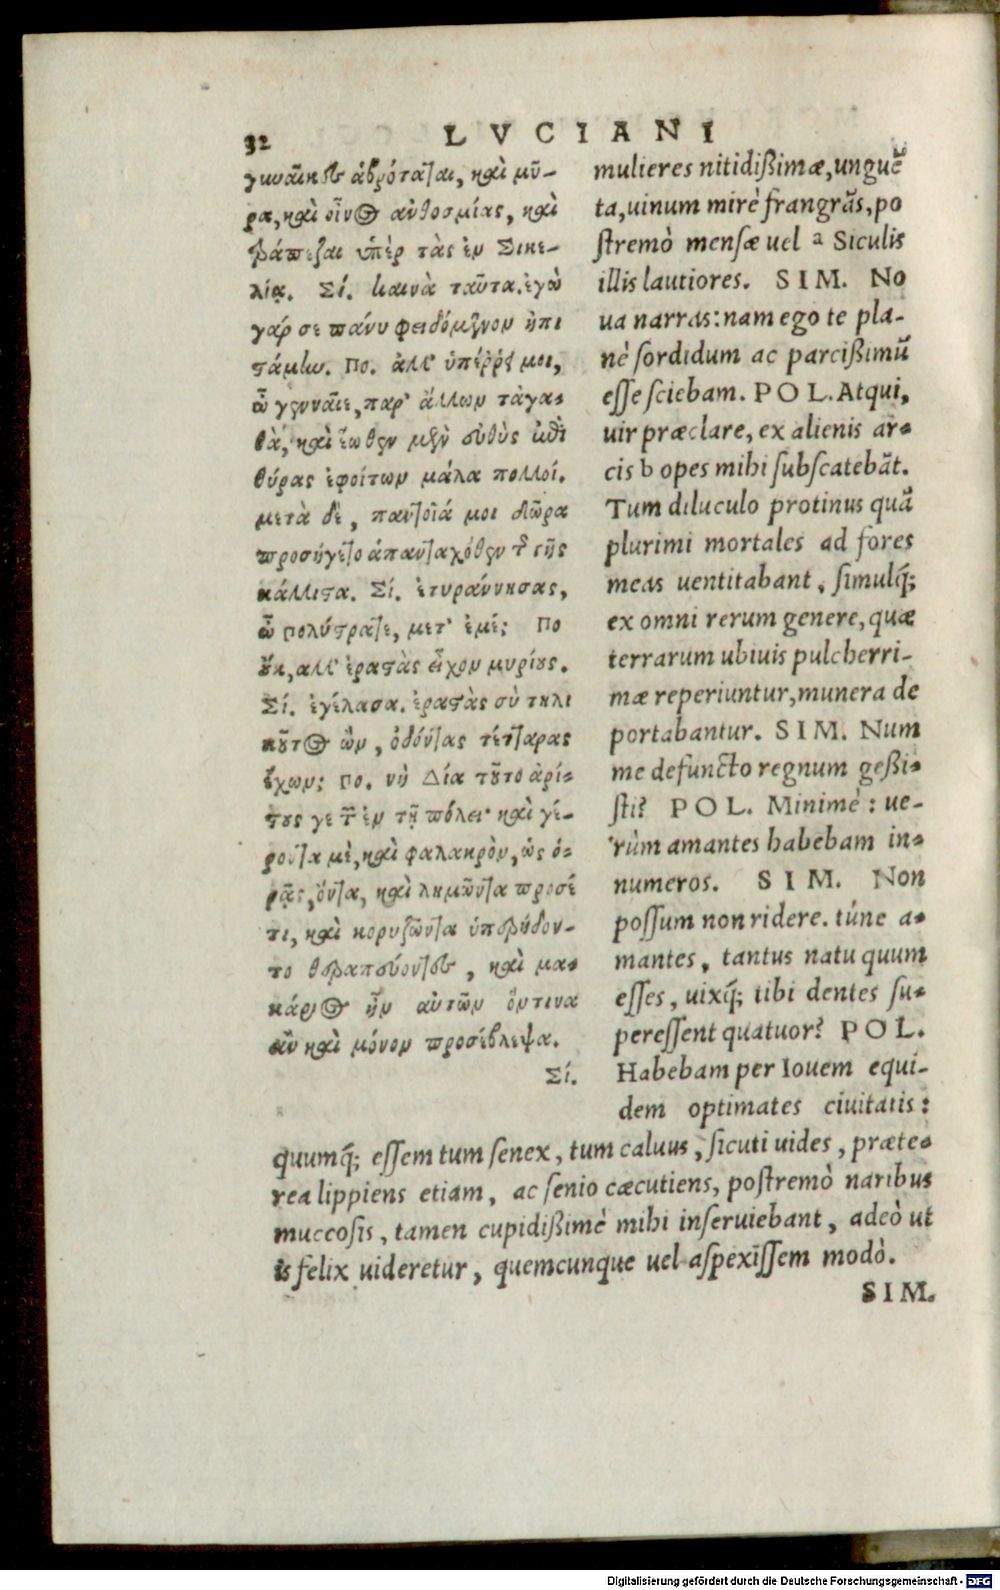 32 LVCIANI
γυναῖκες ἁβρόταται, καὶ μῦ-
ρα, καὶ οἶνος ἀνθοσμίας, καὶ
τράπεζαι ὑπὲρ τὰς ἐν Σικε-
λίᾳ. Σί. καινὰ ταῦτα. ἐγὼ
γάρ σε πάνυ φειδόμενον ἠπι
στάμην. Πο. ἀλλ' ὑπέρρει μοι,
ὦ γενναῖε, παρ' ἄλλων τἀγα-
θὰ, καὶ ἕωθεν μὲν εὐθὺς ἐπὶ
θύρας ἐφοίτων μάλα πολλοί.
μετὰ δὲ, παντοῖά μοι δῶρα
προσήγετο ἁπανταχόθεν τ͂ γῆς
κάλλιστα. Σί. ἐτυράννησας,
ὦ Πολύστρατε, μετ' ἐμέ; Πο
οὔκ, ἀλλ' ἐραστὰς εἶχον μυρίους.
Σί. ἐγέλασα. ἐραστὰς σὺ τηλι
κοῦτος ὢν, ὀδόντας τέτταρας
ἔχων; Πο. νὴ Δία τοῦτο ἀρί-
στους γε τ͂ ἐν τῇ πόλει· καὶ γέ-
ροντα μὲ, καὶ φαλακρὸν, ὡς ὁ-
ρᾷς, ὄντα, καὶ λημῶντα προσέ
τι, καὶ κορυζῶντα ὑπερήδον-
το θεραπεύοντες, καὶ μα-
κάριος ἦν αὐτῶν ὅντινα
ἂν καὶ μόνον προσέβλεψα.
Σί.
mulieres nitidißimæ, unguẽ
ta, uinum mirè frangrãs, po
ſtremò menſæ uel a Siculis
illis lautiores. SIM. No
ua narras: nam ego te pla-
nè ſordidum ac parcißimũ
eſſe ſciebam. POL. Atqui,
uir præclare, ex alienis ar-
cis b opes mihi ſubſcatebãt.
Tum diluculo protinus quã
plurimi mortales ad fores
meas uentitabant, ſimulq́;
ex omni rerum genere, quæ
terrarum ubiuis pulcherri-
mæ reperiuntur, munera de
portabantur. SIM. Num
me defuncto regnum geßi-
ſti? POL. Minimè: ue-
rùm amantes habebam in-
numeros. SIM. Non
poſſum non ridere. túne a-
mantes, tantus natu quum
eſſes, uixq́; tibi dentes ſu-
pereſſent quatuor? POL.
Habebam per Iouem equi-
dem optimates ciuitatis:
quumq́; eſſem tum ſenex, tum caluus, ſicuti uides, præte-
rea lippiens etiam, ac ſenio cæcutiens, poſtremò naribus
muccoſis, tamen cupidißimè mihi inſeruiebant, adeò ut
is felix uideretur, quemcunque uel aſpexiſſem modò.
SIM.
Digitalisierung gefördert durch die Deutsche Forschungsgemeinschaft - DFG